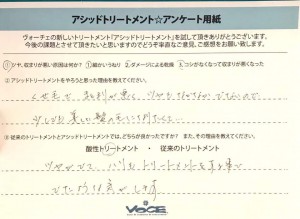 アシッドトリートメント☆アンケート用紙
ヴォーチェの新しいトリートメント「アシッドトリートメント」を試して頂きありがとうございます。
今後の課題とさせて頂きたいと思いますのでどうぞ率直なご意見、ご感想をお願い致します。
①ツヤ、収まりが悪い原因は何か? ①細かいうねり ②ダメージによる乾燥 ③コシがなくなって収まりが悪くなった
②アシッドトリートメントをやろうと思った理由を教えてください。
くせ毛で、
少しでも美しい髪の毛に
③従来のトリートメントとアシッドトリートメントでは、どちらが良かったですか? また、その理由を教えてください。
酸性トリートメント ・ 従来のトリートメント
ツヤがでて、ハリもトリートメントをする事で
でたような気がします
VOCE